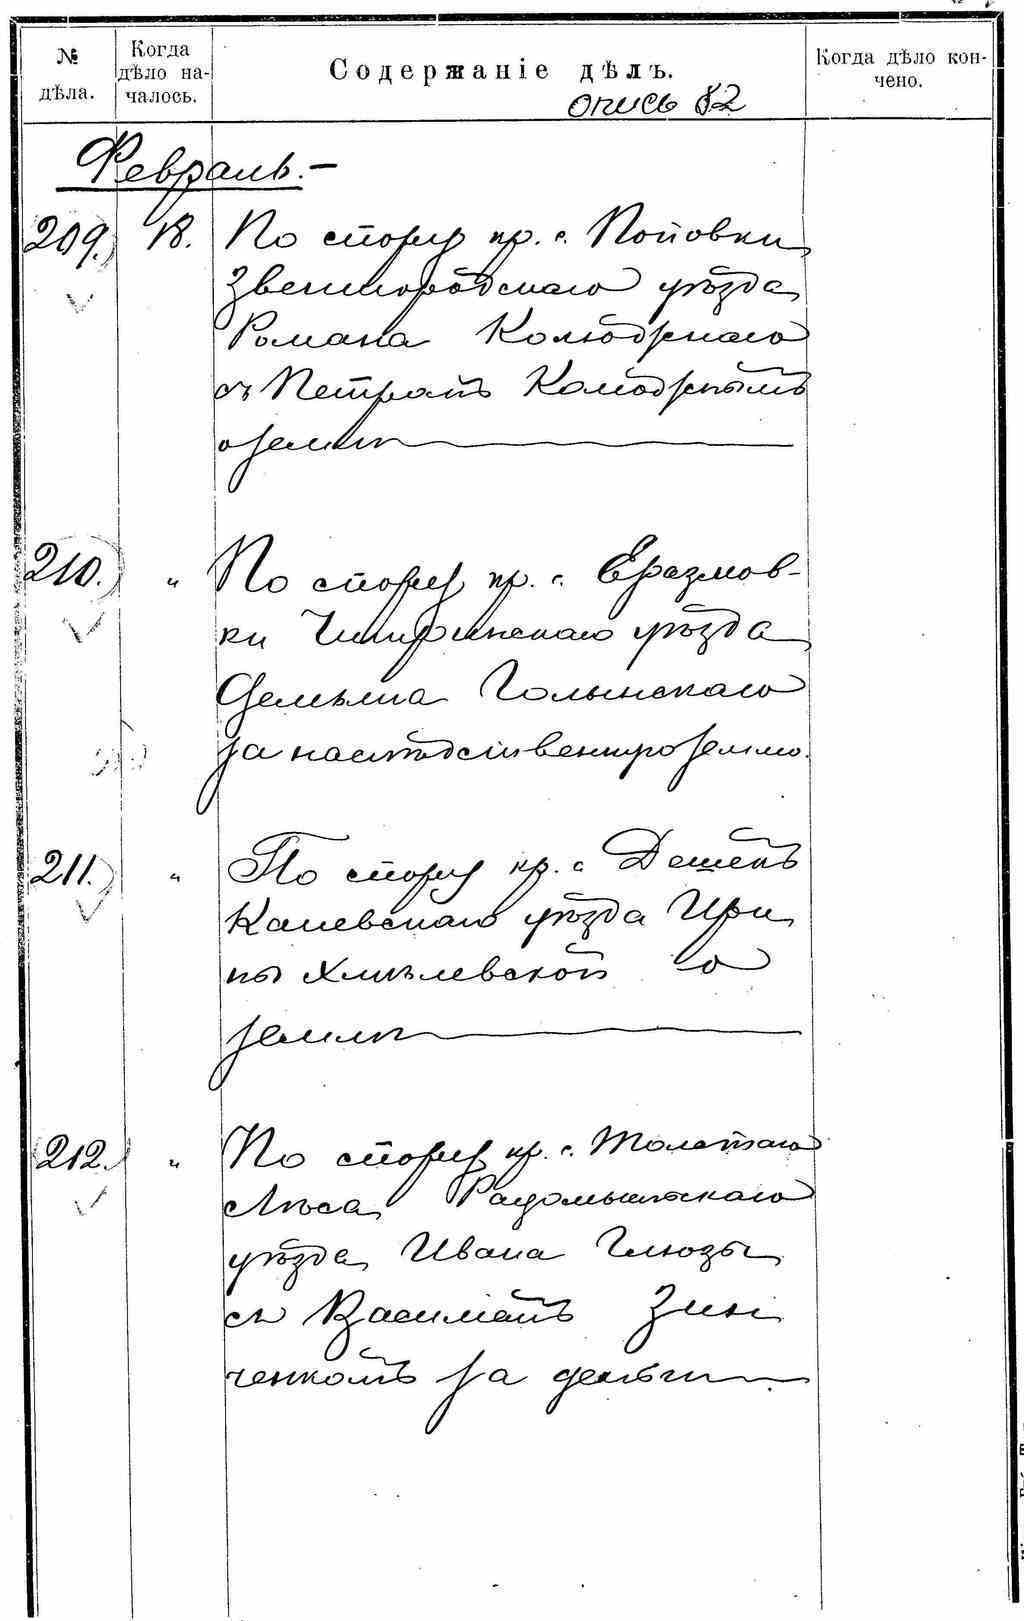 № дѣла. Когда дѣло началось. Содержаніе дѣлъ. Когда дѣло кончено.
опись 82
Февраль.-
209. 18. По спору кр. с. Поповки
Звенигородскаго уѣзда
Романа
съ Петромъ
о землѣ
210. " По спору кр. с. Еразмов-
ки Чигиринскаго уѣзда
Демьяна Голынскаго
за наслѣдственную землю.
211. " По спору кр. с. Дешекъ
Каневскаго уѣзда Ири
ны Хмѣлевской о
землѣ
212. " По спору кр. с. Толстаго
Лѣса Радомысльскаго
уѣзда Ивана
съ Василіемъ Зин
ченкомъ за деньги